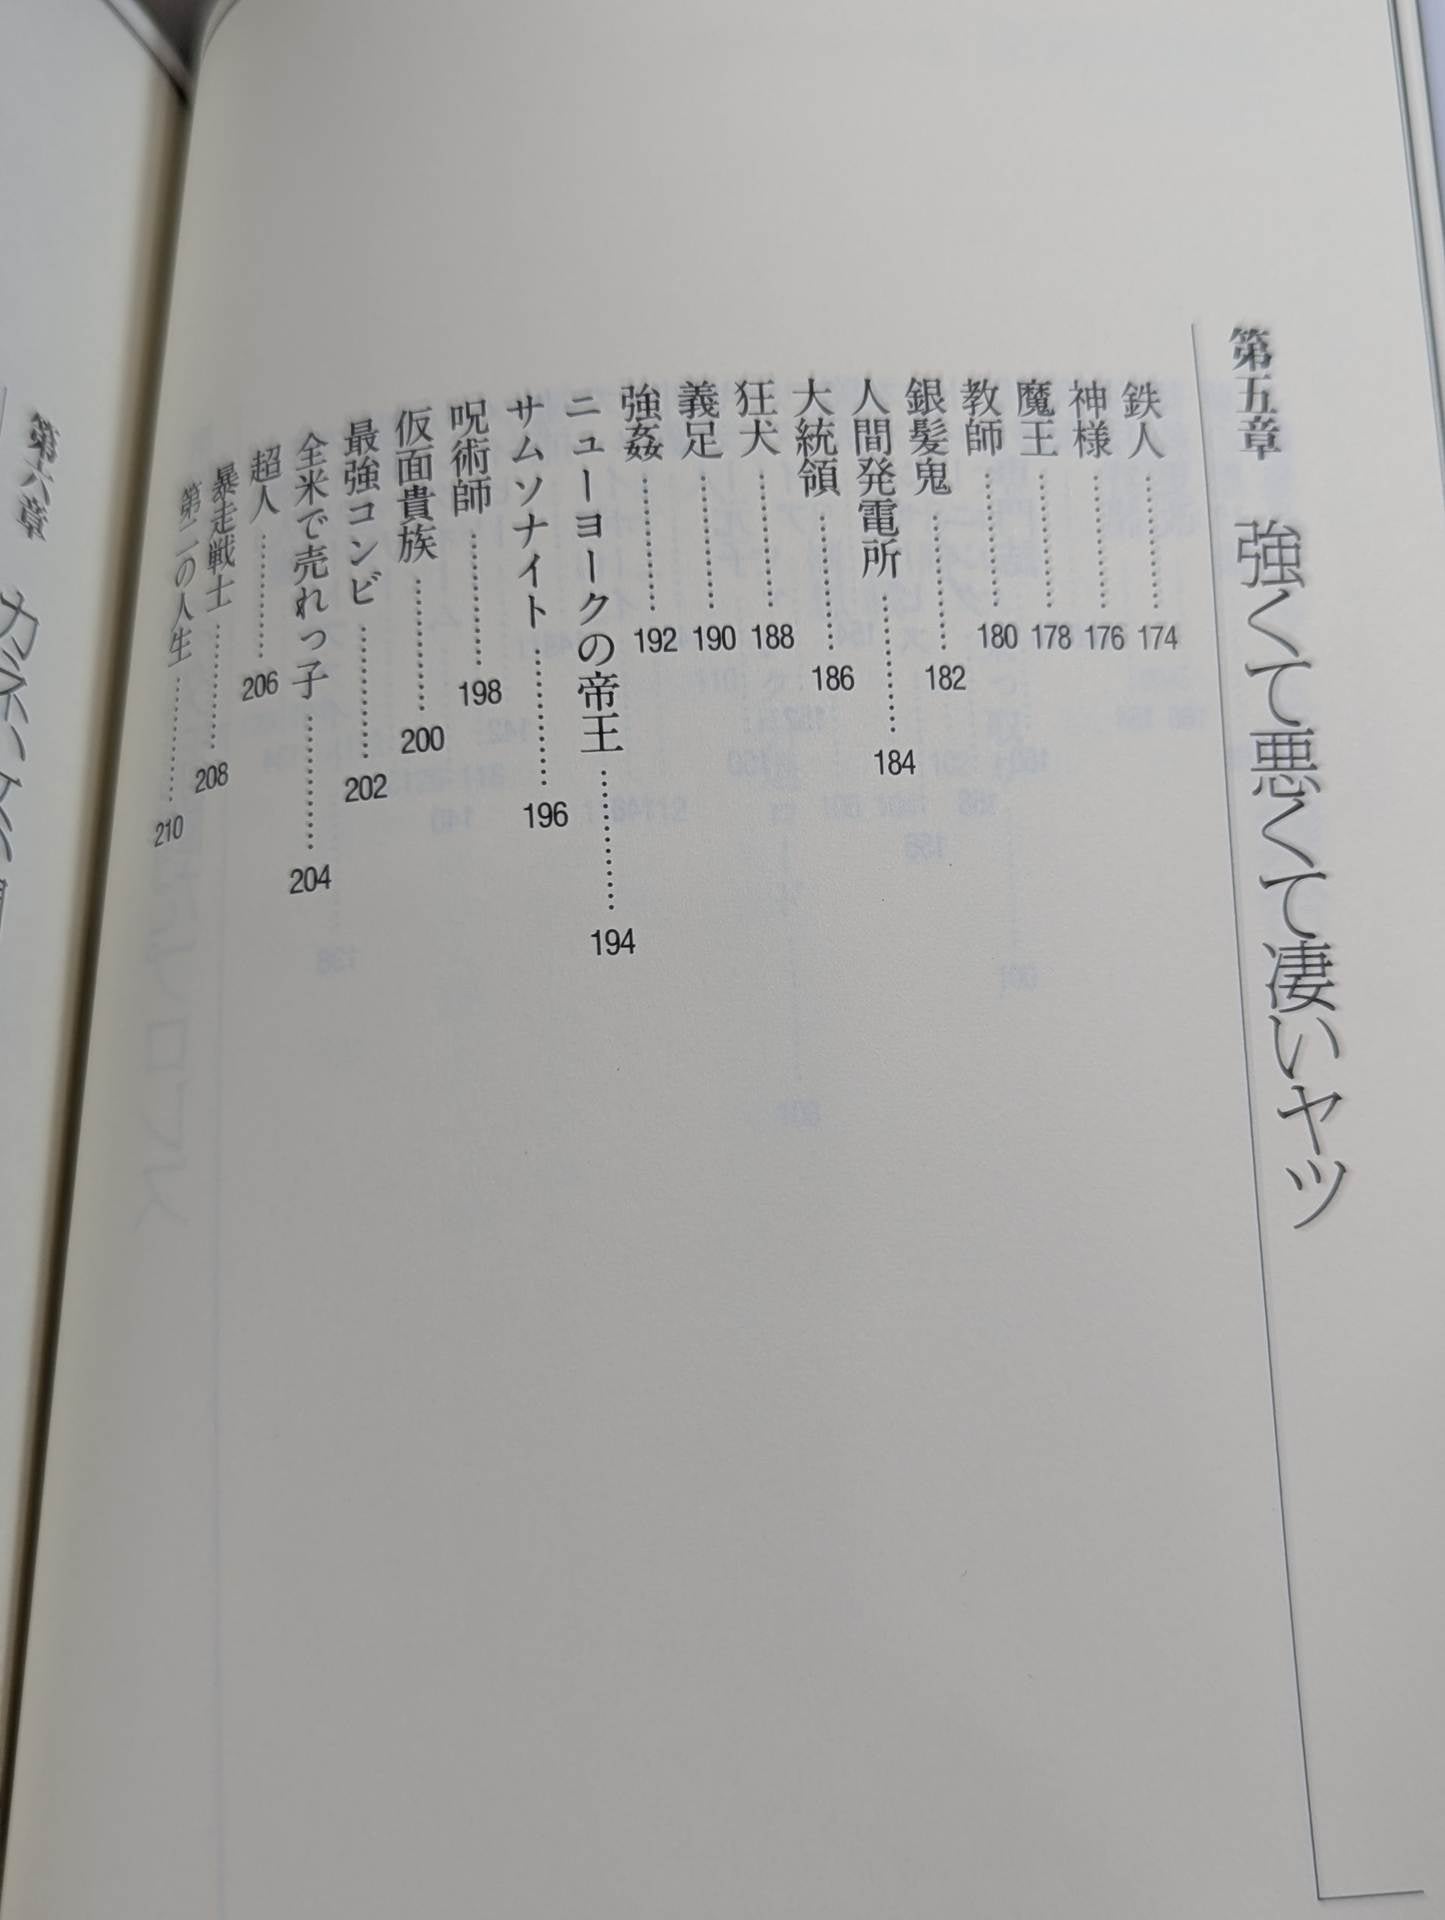 第五章 強くて悪くて凄いヤツ
鉄人…………174
神様…………176
魔王…………178
教師…………180
銀髪鬼…………182
人間発電所…………184
大統領…………186
狂犬…………188
義足…………190
強姦…………192
ニューヨークの帝王…………194
サムソナイト…………196
呪術師…………198
仮面貴族…………200
最強コンビ…………202
全米で売れっ子…………204
超人…………206
暴走戦士…………208
第二の人生…………210
第六章